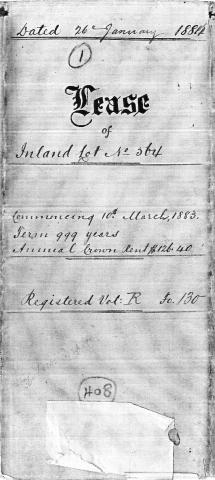 Dated 26th January 1884
1
Lease
of
Inland Lot No 364
Commencing 10th March, 1883.
Term 999 years
Annual Crown Rent $126.40
Registered Vol: R Fo. 130
408